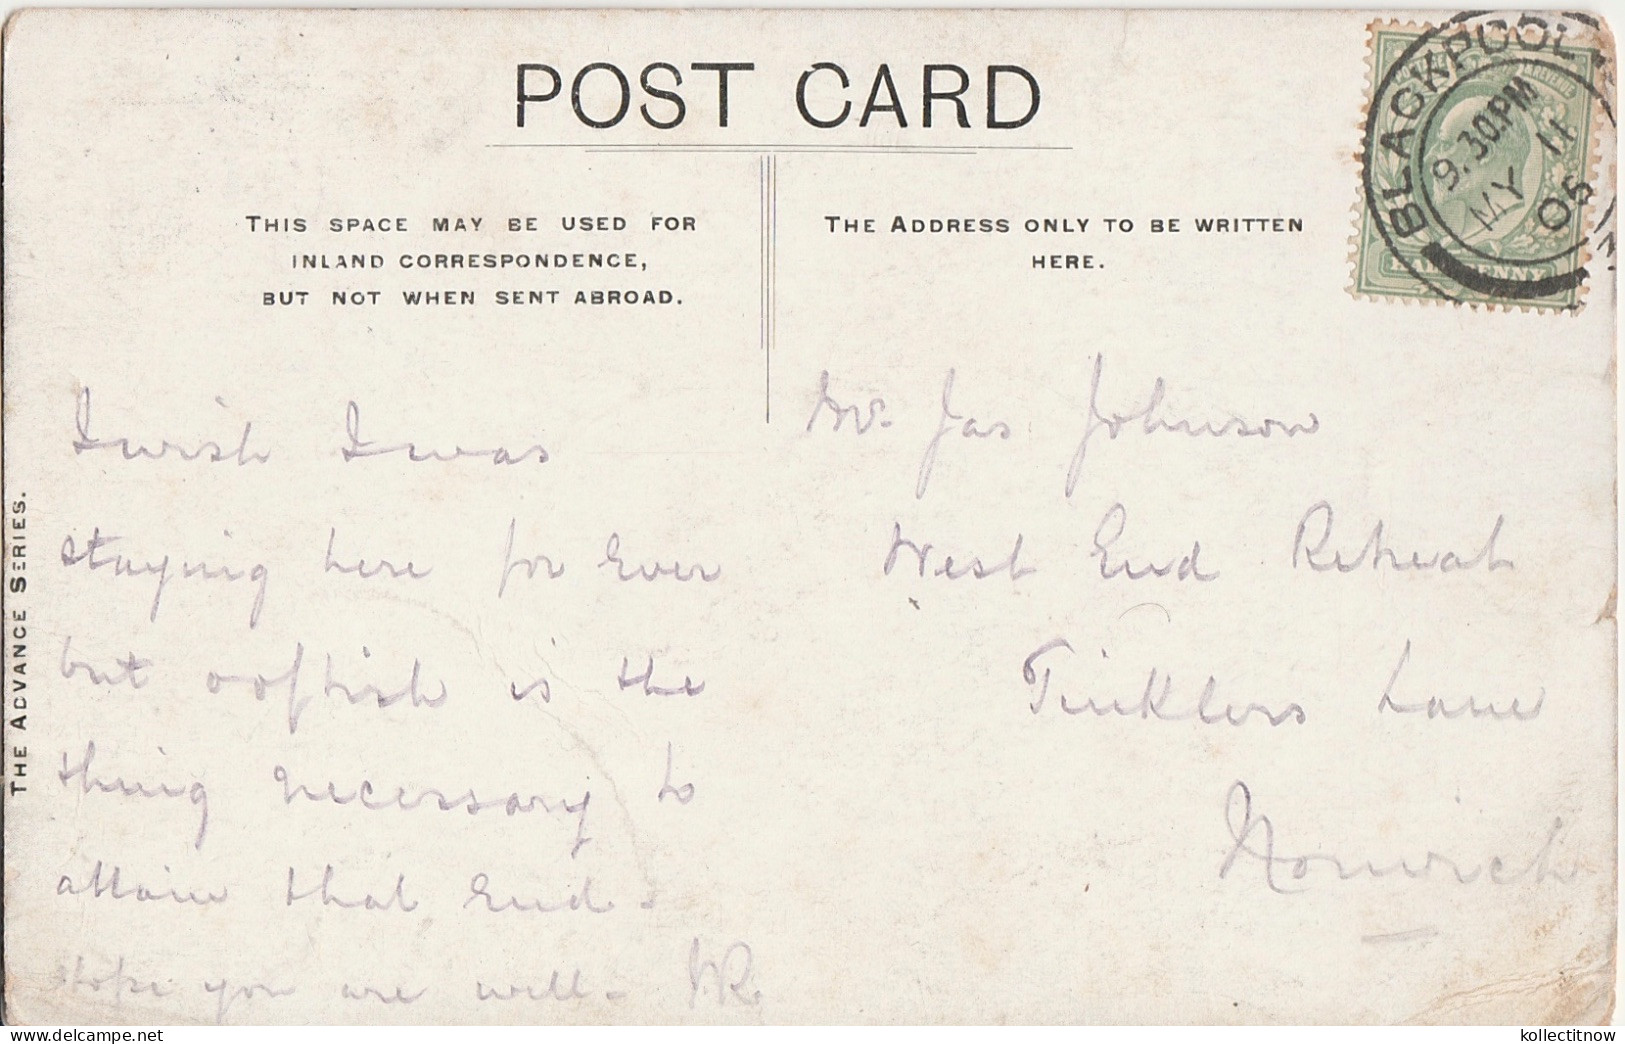 POST CARD
THIS SPACE MAY BE USED FOR
INLAND CORRESPONDENCE,
BUT NOT WHEN SENT ABROAD.
THE ADDRESS ONLY TO BE WRITTEN
HERE.
BLACKPOOL
9.30PM
MY 11
06
HALFPENNY
THE ADVANCE SERIES.
I wish I was
staying here for ever
but ooftish is the
thing necessary to
attain that end.
Hope you are well. JR
Mr. Jas Johnson
West End Retreat
Tinklers Lane
Norwich
kollectitnow